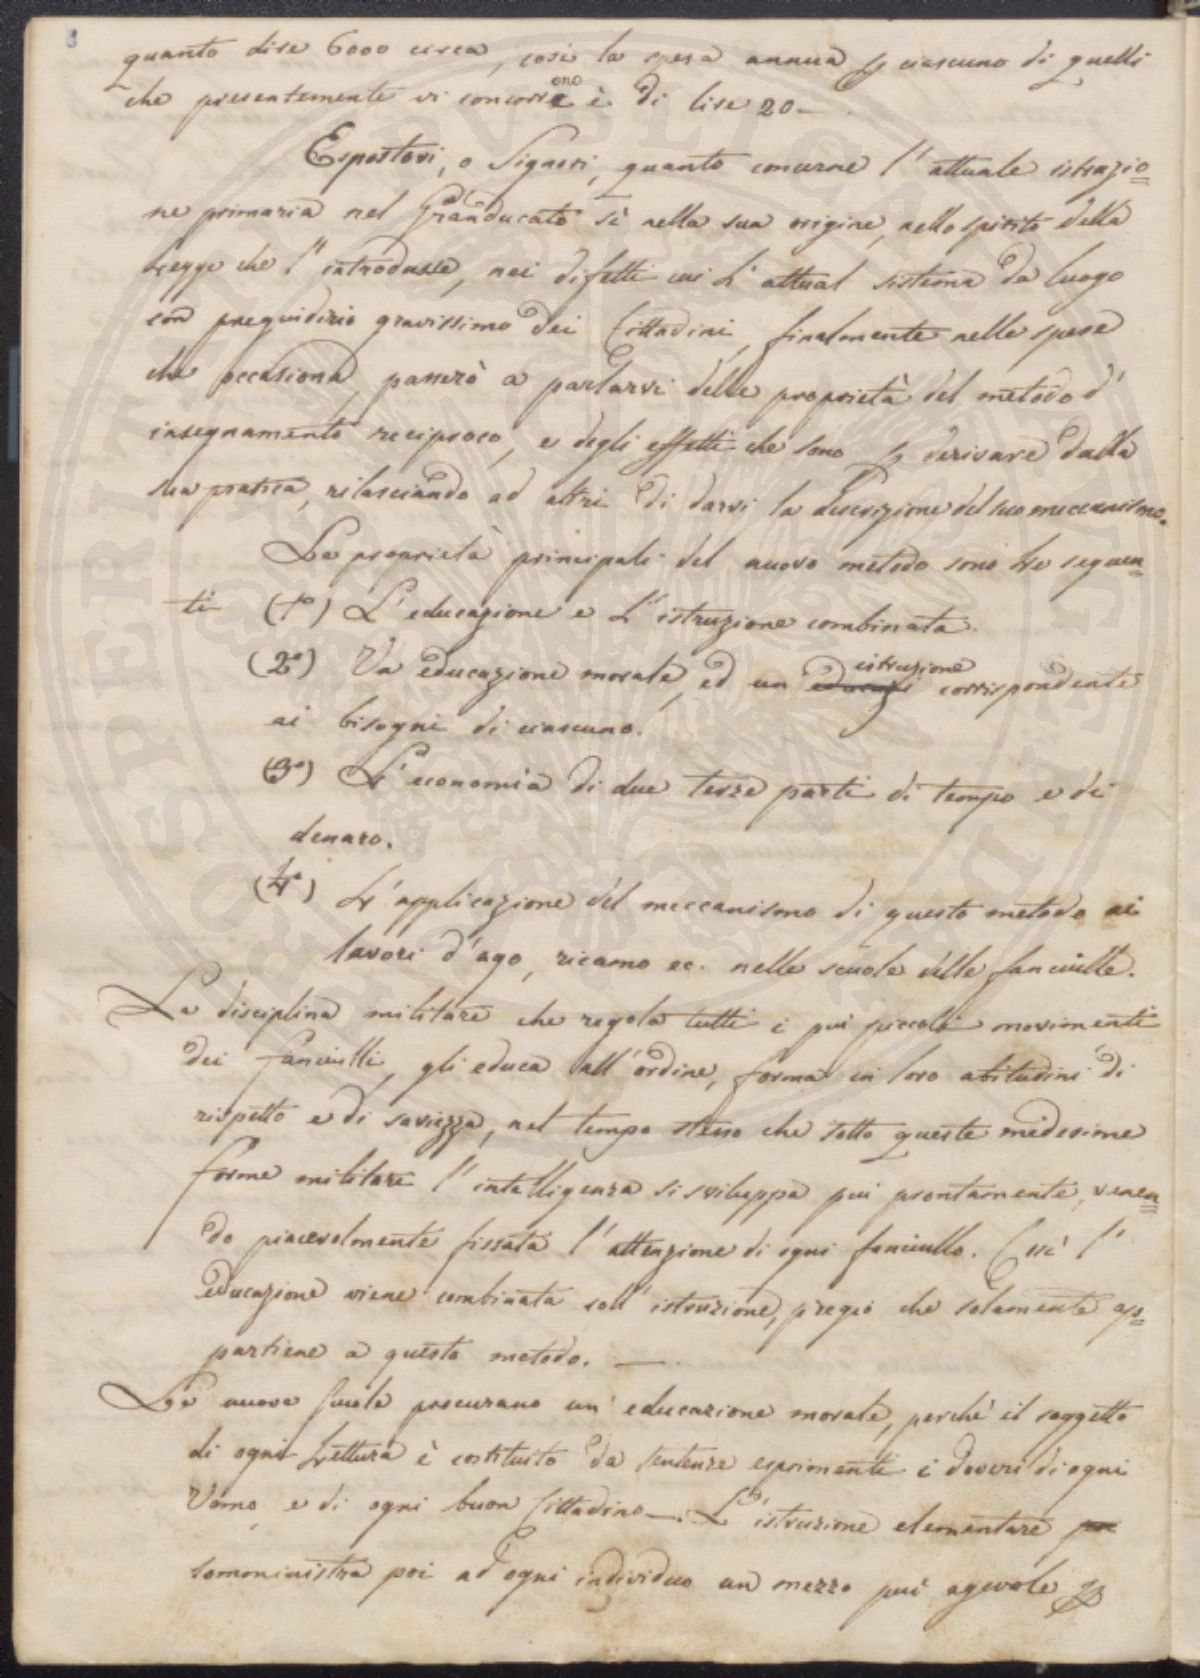 quanto lire 6000 circa, così la spesa annua p ciascuno di quelli
che presentemente vi concorrono è di lire 20.—
Espostovi, o Signori, quanto concerne l'attuale istruzio=
ne primaria nel Granducato sì nella sua origine, nello spirito della
Legge che l'introdusse, nei difetti cui l'attual sistema da luogo
con pregiudizio gravissimo dei Cittadini, finalmente nelle spese
che occasiona, passerò a parlarvi delle proprietà del metodo d'
insegnamento reciproco, e degli effetti che sono p derivare dalla
sua pratica, rilasciando ad altri di darvi la descrizione del suo meccanismo.
Le proprietà principali del nuovo metodo sono le seguen=
ti (1°) L'educazione e l'istruzione combinata.
(2°) Un educazione morale, ed un educazi istruzione corrispondente
ai bisogni di ciascuno.
(3°) L'economia di due terze parti di tempo e di
denaro.
(4°) L'applicazione del meccanismo di questo metodo ai
lavori d'ago, ricamo ec. nelle scuole delle fanciulle.
La disciplina militare che regola tutti i più piccoli movimenti
dei fanciulli, gli educa all'ordine, forma in loro abitudini di
rispetto e di saviezza, nel tempo stesso che sotto queste medesime
forme militari l'intelligenza si sviluppa più prontamente, venen=
do piacevolmente fissata l'attenzione di ogni fanciullo. Così l'
educazione viene combinata coll'istruzione, pregio che solamente ap=
partiene a questo metodo. —
Le nuove scuole procurano un'educazione morale, perchè il soggetto
di ogni Lettura è costituito da sentenze esprimenti i doveri di ogni
Uomo, e di ogni buon Cittadino —. L'istruzione elementare poi
somministra poi ad ogni individuo un mezzo più agevole p